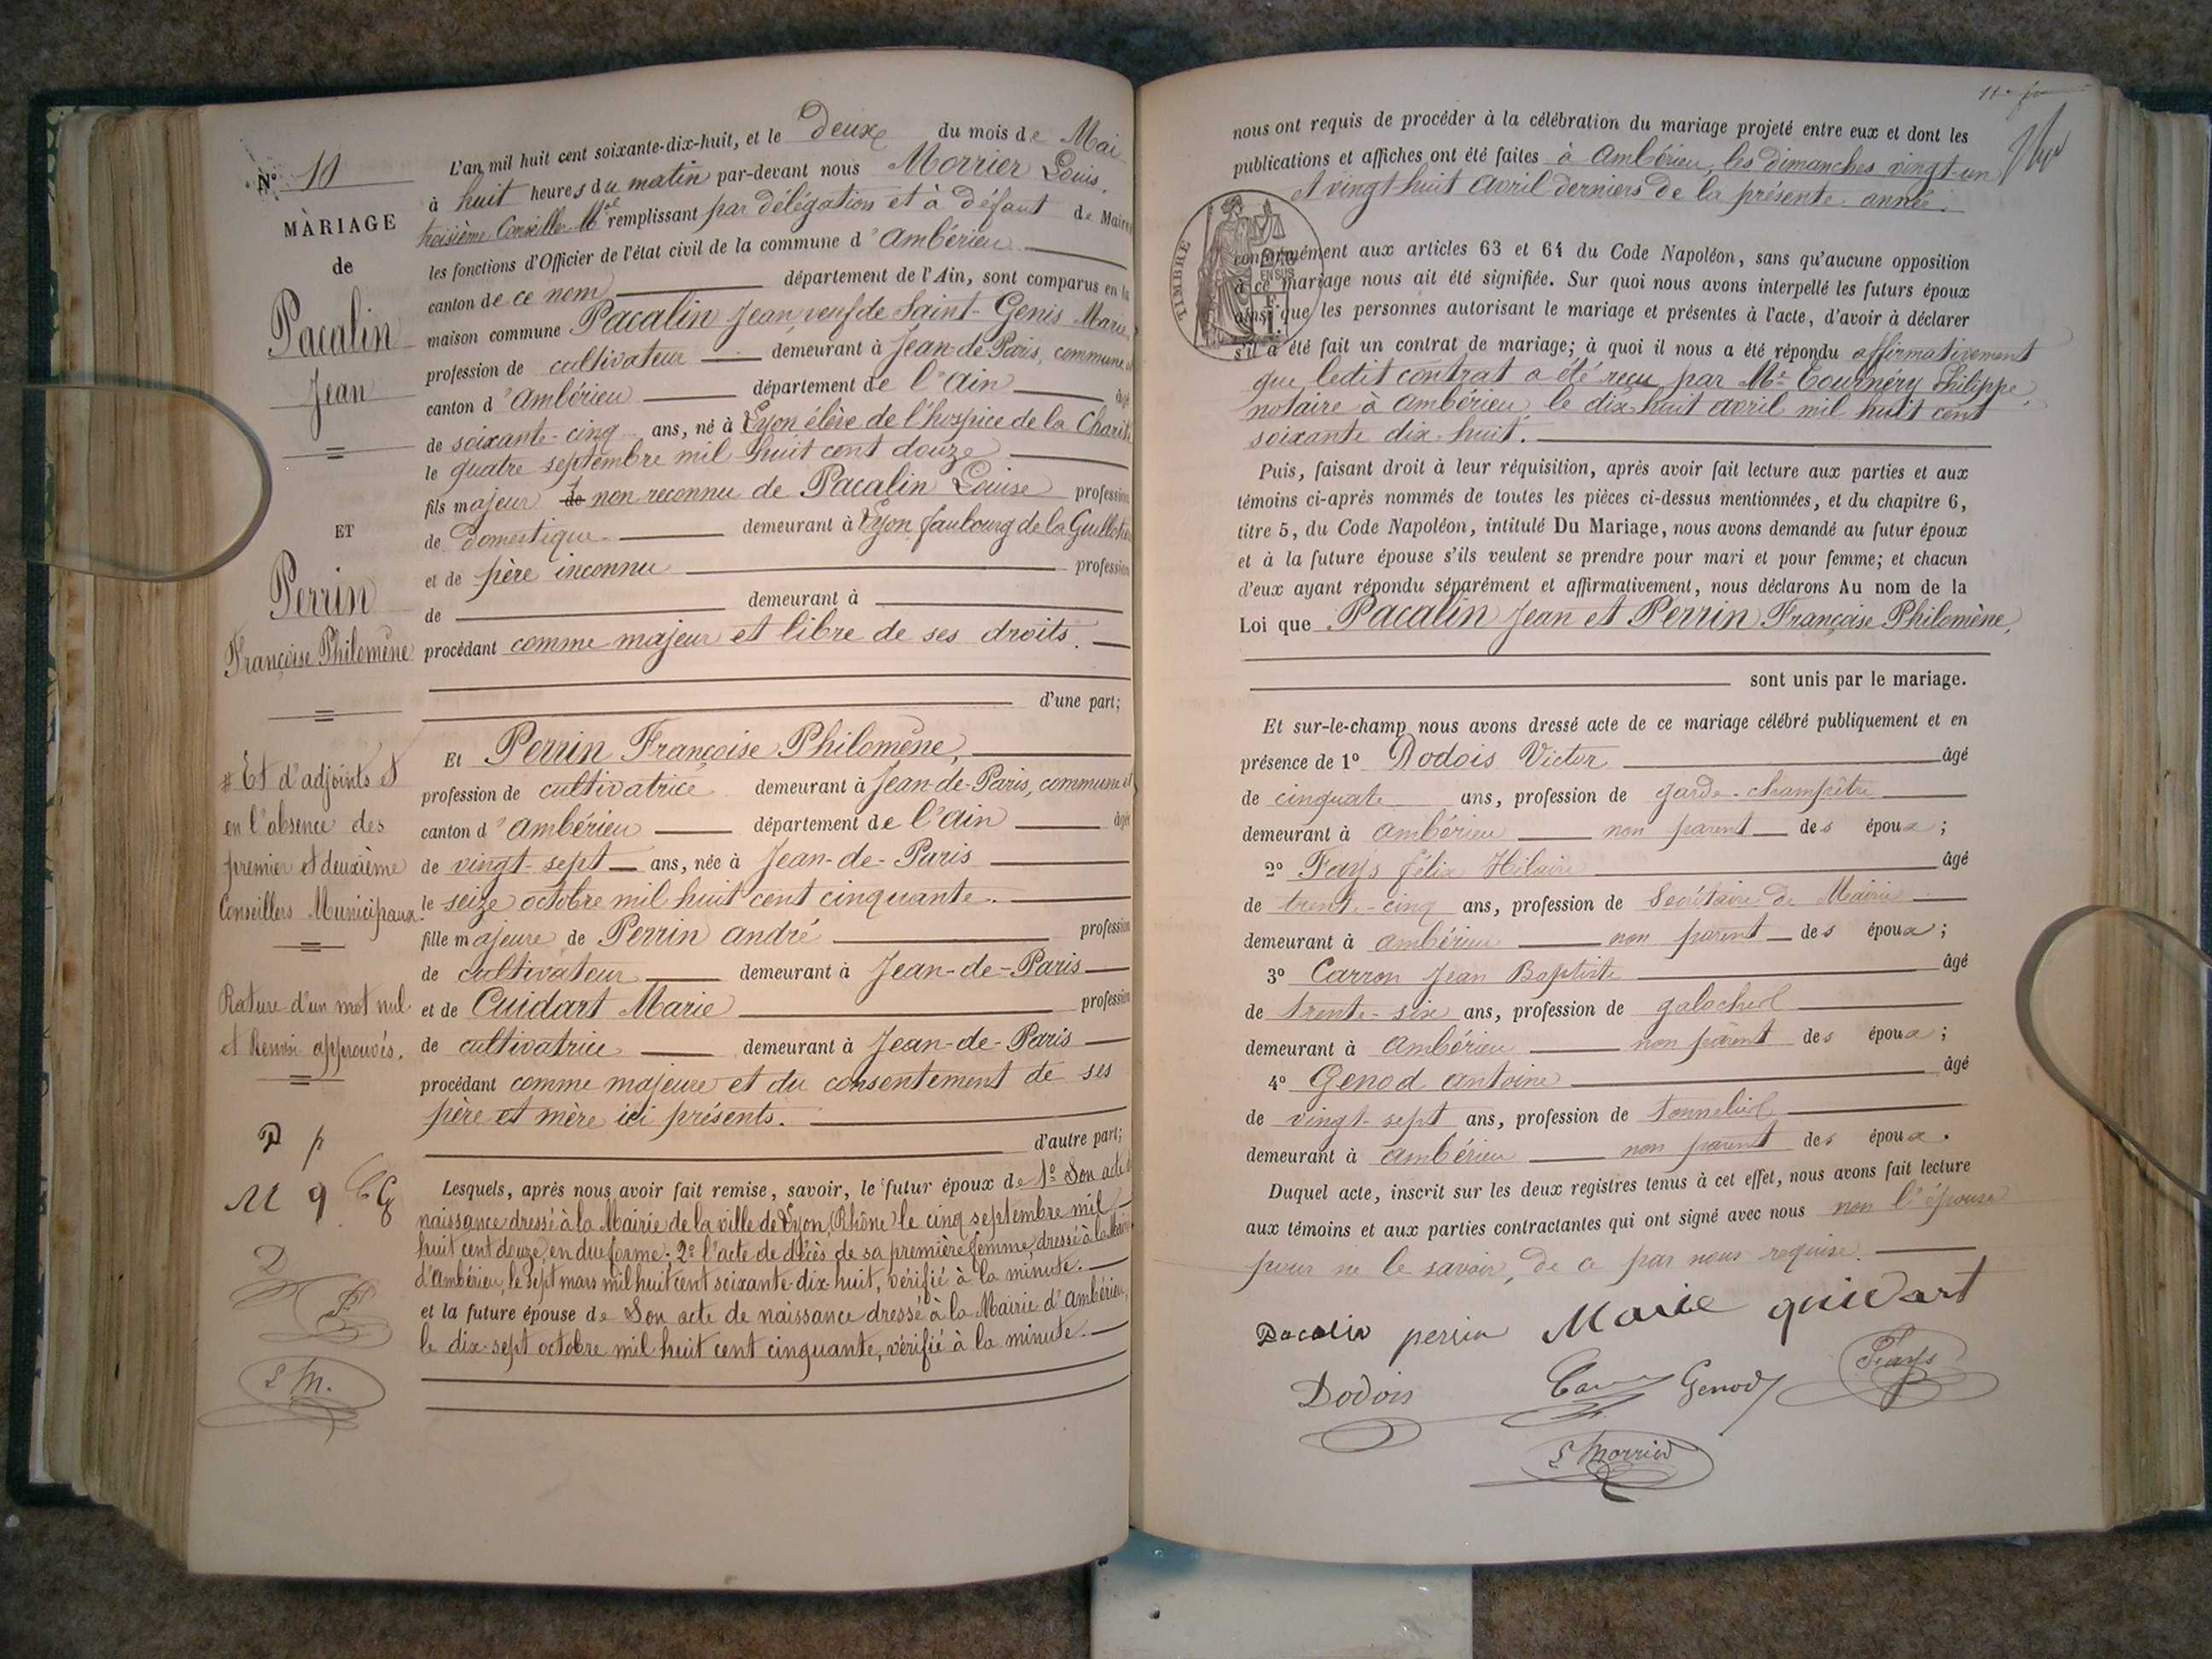 N.° 11
MARIAGE
de
Pacalin
Jean
ET
Perrin
Françoise Philomène
# Et d'adjoints et
en l'absence des
premier et deuxième
Conseillers Municipaux.
Rature d'un mot nul
et Renvoi approuvés.
P p
M q
L M.
L'an mil huit cent soixante-dix-huit, et le Deux du mois de Mai
à huit heures du matin par-devant nous Morrier Louis,
troisième Conseiller Mal remplissant par délégation et à défaut de Maire
les fonctions d'Officier de l'état civil de la commune d'Ambérieu
canton de ce nom département de l'Ain, sont comparus en la
maison commune Pacalin Jean, veuf de Saint-Genis Marie,
profession de cultivateur demeurant à Jean-de-Paris, commune et
canton d'Ambérieu département de l'Ain âgé
de soixante-cinq ans, né à Lyon élève de l'hospice de la Charité
le quatre septembre mil huit cent douze
fils majeur de non reconnu de Pacalin Louise profession
de domestique demeurant à Lyon faubourg de la Guillotière
et de père inconnu profession
de demeurant à
procédant comme majeur et libre de ses droits.
d'une part;
Et Perrin Françoise Philomène,
profession de cultivatrice demeurant à Jean-de-Paris, commune et
canton d'Ambérieu département de l'Ain âgée
de vingt-sept ans, née à Jean-de-Paris
le seize octobre mil huit cent cinquante.
fille majeure de Perrin André profession
de cultivateur demeurant à Jean-de-Paris
et de Cuidart Marie profession
de cultivatrice demeurant à Jean-de-Paris
procédant comme majeure et du consentement de ses
père et mère ici présents.
d'autre part;
Lesquels, après nous avoir fait remise, savoir, le futur époux de 1° Son acte de
naissance dressé à la Mairie de la ville de Lyon (Rhône) le cinq septembre mil
huit cent douze, en due forme; 2° l'acte de décès de sa première femme, dressé à la Mairie
d'Ambérieu, le sept mars mil huit cent soixante-dix-huit, vérifié à la minute.
et la future épouse de Son acte de naissance dressé à la Mairie d'Ambérieu,
le dix-sept octobre mil huit cent cinquante, vérifié à la minute.
nous ont requis de procéder à la célébration du mariage projeté entre eux et dont les
publications et affiches ont été faites à Ambérieu, les dimanches vingt-un
et vingt-huit avril derniers de la présente année.
TIMBRE
conformément aux articles 63 et 64 du Code Napoléon, sans qu'aucune opposition
à ce mariage nous ait été signifiée. Sur quoi nous avons interpellé les futurs époux
ainsi que les personnes autorisant le mariage et présentes à l'acte, d'avoir à déclarer
s'il a été fait un contrat de mariage; à quoi il nous a été répondu affirmativement
que ledit contrat a été reçu par Me Tournéry Philippe,
notaire à Ambérieu, le dix-huit avril mil huit cent
soixante dix-huit.
Puis, faisant droit à leur réquisition, après avoir fait lecture aux parties et aux
témoins ci-après nommés de toutes les pièces ci-dessus mentionnées, et du chapitre 6,
titre 5, du Code Napoléon, intitulé Du Mariage, nous avons demandé au futur époux
et à la future épouse s'ils veulent se prendre pour mari et pour femme; et chacun
d'eux ayant répondu séparément et affirmativement, nous déclarons Au nom de la
Loi que Pacalin Jean et Perrin Françoise Philomène,
sont unis par le mariage.
Et sur-le-champ nous avons dressé acte de ce mariage célébré publiquement et en
présence de 1° Dodois Victor âgé
de cinquate ans, profession de garde-champêtre
demeurant à Ambérieu non parent des époux;
2° Fays Félix Hilaire âgé
de trente-cinq ans, profession de Secrétaire de Mairie
demeurant à Ambérieu non parent des époux;
3° Carron Jean Baptiste âgé
de trente-six ans, profession de galochier
demeurant à Ambérieu non parent des époux;
4° Genod Antoine âgé
de vingt-sept ans, profession de tonnelier
demeurant à Ambérieu non parent des époux.
Duquel acte, inscrit sur les deux registres tenus à cet effet, nous avons fait lecture
aux témoins et aux parties contractantes qui ont signé avec nous non l'épouse
pour ne le savoir, de ce par nous requise.
Pacalin perrin Marie quidart
Dodois Genod Fays
L Morrier